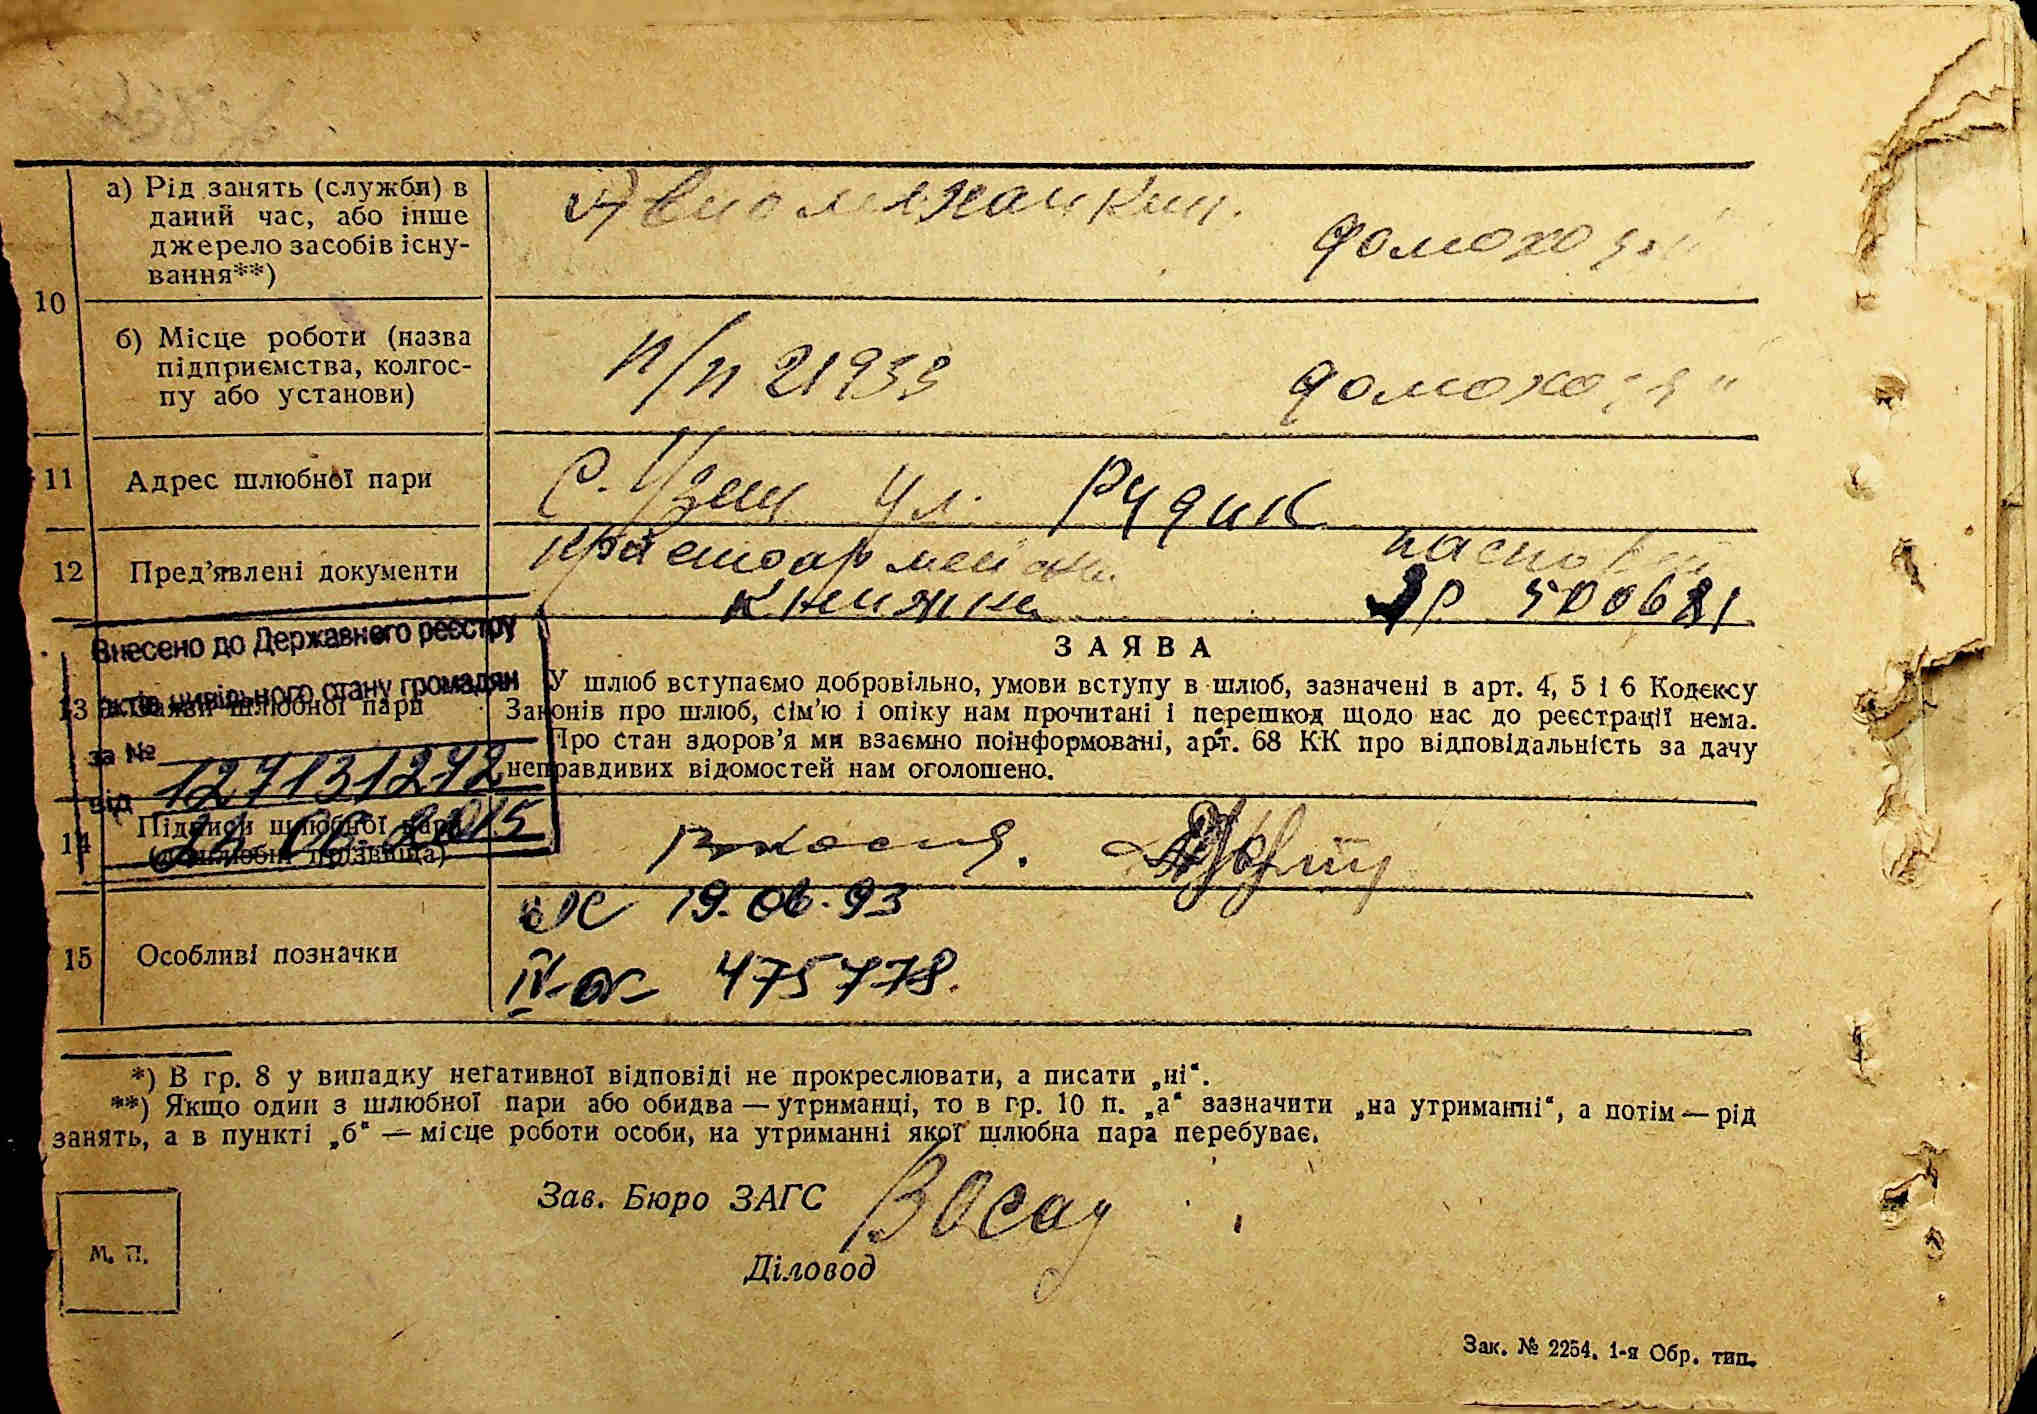 а) Рід занять (служби) в
даний час, або інше
джерело засобів існу-
вання**)
Авиомеханик
домохоз
10
б) Місце роботи (назва
підприємства, колгос-
пу або установи)
п/п 21933
домохоз
11
Адрес шлюбної пари
С. Узин ул. Рудик
12
Пред’явлені документи
красноармейск.
книжка
паспорт
ЗАЯВА
Внесено до Державного реєстру
актів цивільного стану громадян
за № 127131272
від 2015
13
Заяви шлюбної пари
У шлюб вступаємо добровільно, умови вступу в шлюб, зазначені в арт. 4, 5 і 6 Кодексу
Законів про шлюб, сім’ю і опіку нам прочитані і перешкод щодо нас до реєстрації нема.
Про стан здоров’я ми взаємно поінформовані, арт. 68 КК про відповідальність за дачу
неправдивих відомостей нам оголошено.
14
Підписи шлюбної пари
(дошлюбні прізвища)
15
Особливі позначки
19.06.93
475778.
*) В гр. 8 у випадку негативної відповіді не прокреслювати, а писати „ні“.
**) Якщо один з шлюбної пари або обидва — утриманці, то в гр. 10 п. „а“ зазначити „на утриманні“, а потім — рід
занять, а в пункті „б“ — місце роботи особи, на утриманні якої шлюбна пара перебуває.
Зав. Бюро ЗАГС
Діловод
М. П.
Зак. № 2254. 1-я Обр. тип.